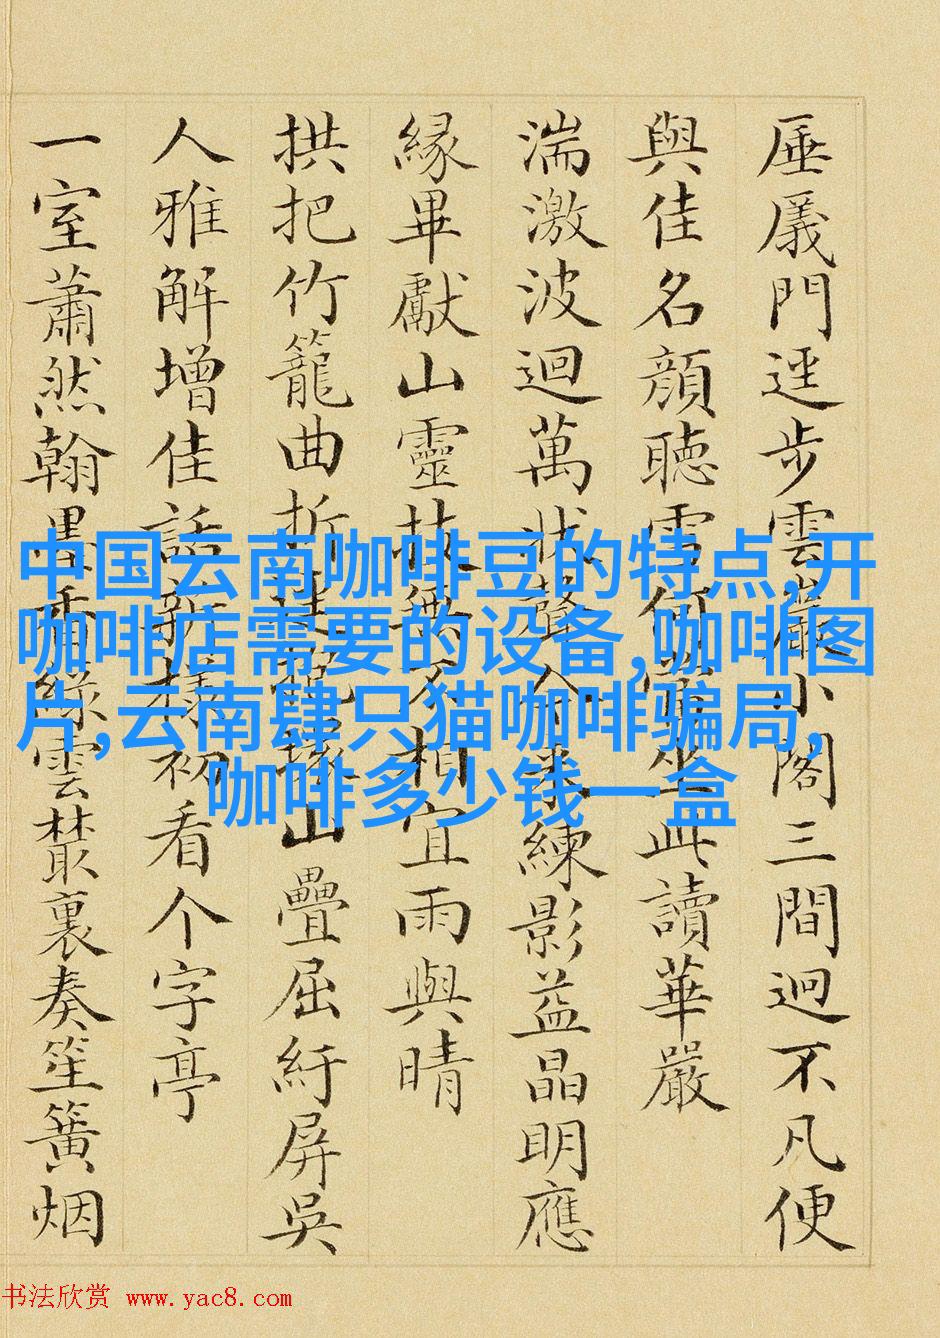 厜㕒門逕步雲巖小閣三間迥不凡便
與佳名顔聽雪何當坐此讀華嚴
湍激波迴萬狀聲來練影益晶明應
緣畢獻山靈技無不相宜雨與晴
拱把竹籠曲折山疊屈紆屏吳
人雅解增佳話新樣初看个字亭
一室蕭然翰墨香綠雲叢裏奏笙簧烟
中国云南咖啡豆的特点,开
咖啡店需要的设备,咖啡图
片,云南肆只猫咖啡骗局,
咖啡多少钱一盒
书法欣赏 www.yac8.com